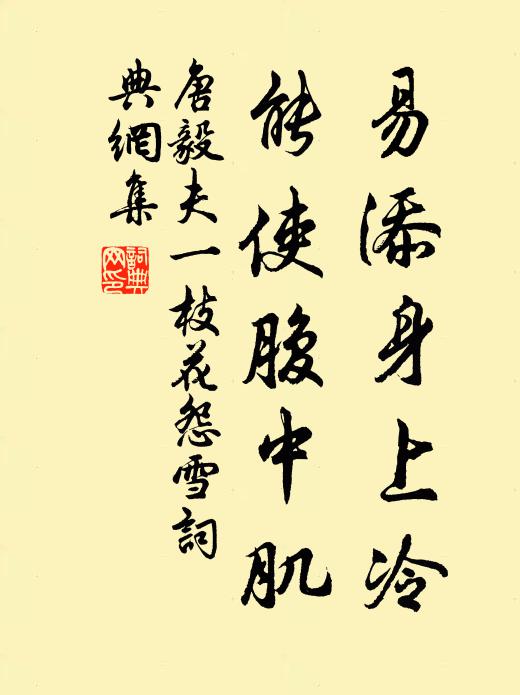 易添身上冷
能使腹中肌
唐毅夫一枝花怨雪詞
典網集
詞典
网印